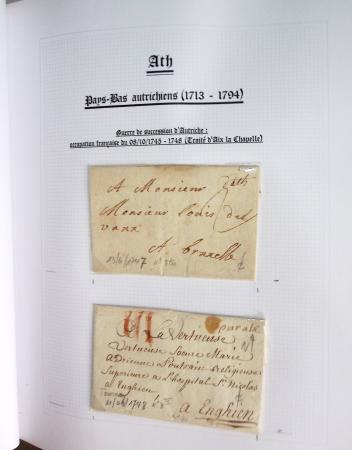 Ath
Pays-Bas autrichiens (1713 - 1794)
Guerre de succession d'Autriche :
occupation française du 08/10/1745 - 1748 (Traité d'Aix la Chapelle)
A Monsieur
Ath
Monsieur louis des
vaux
A bruxelle
La Vertueuse
Vertueuse Soeure Marie
adrienne religieuse
Superieure a L'hospital St Nicolas
a Enghien
a Enghien
1748